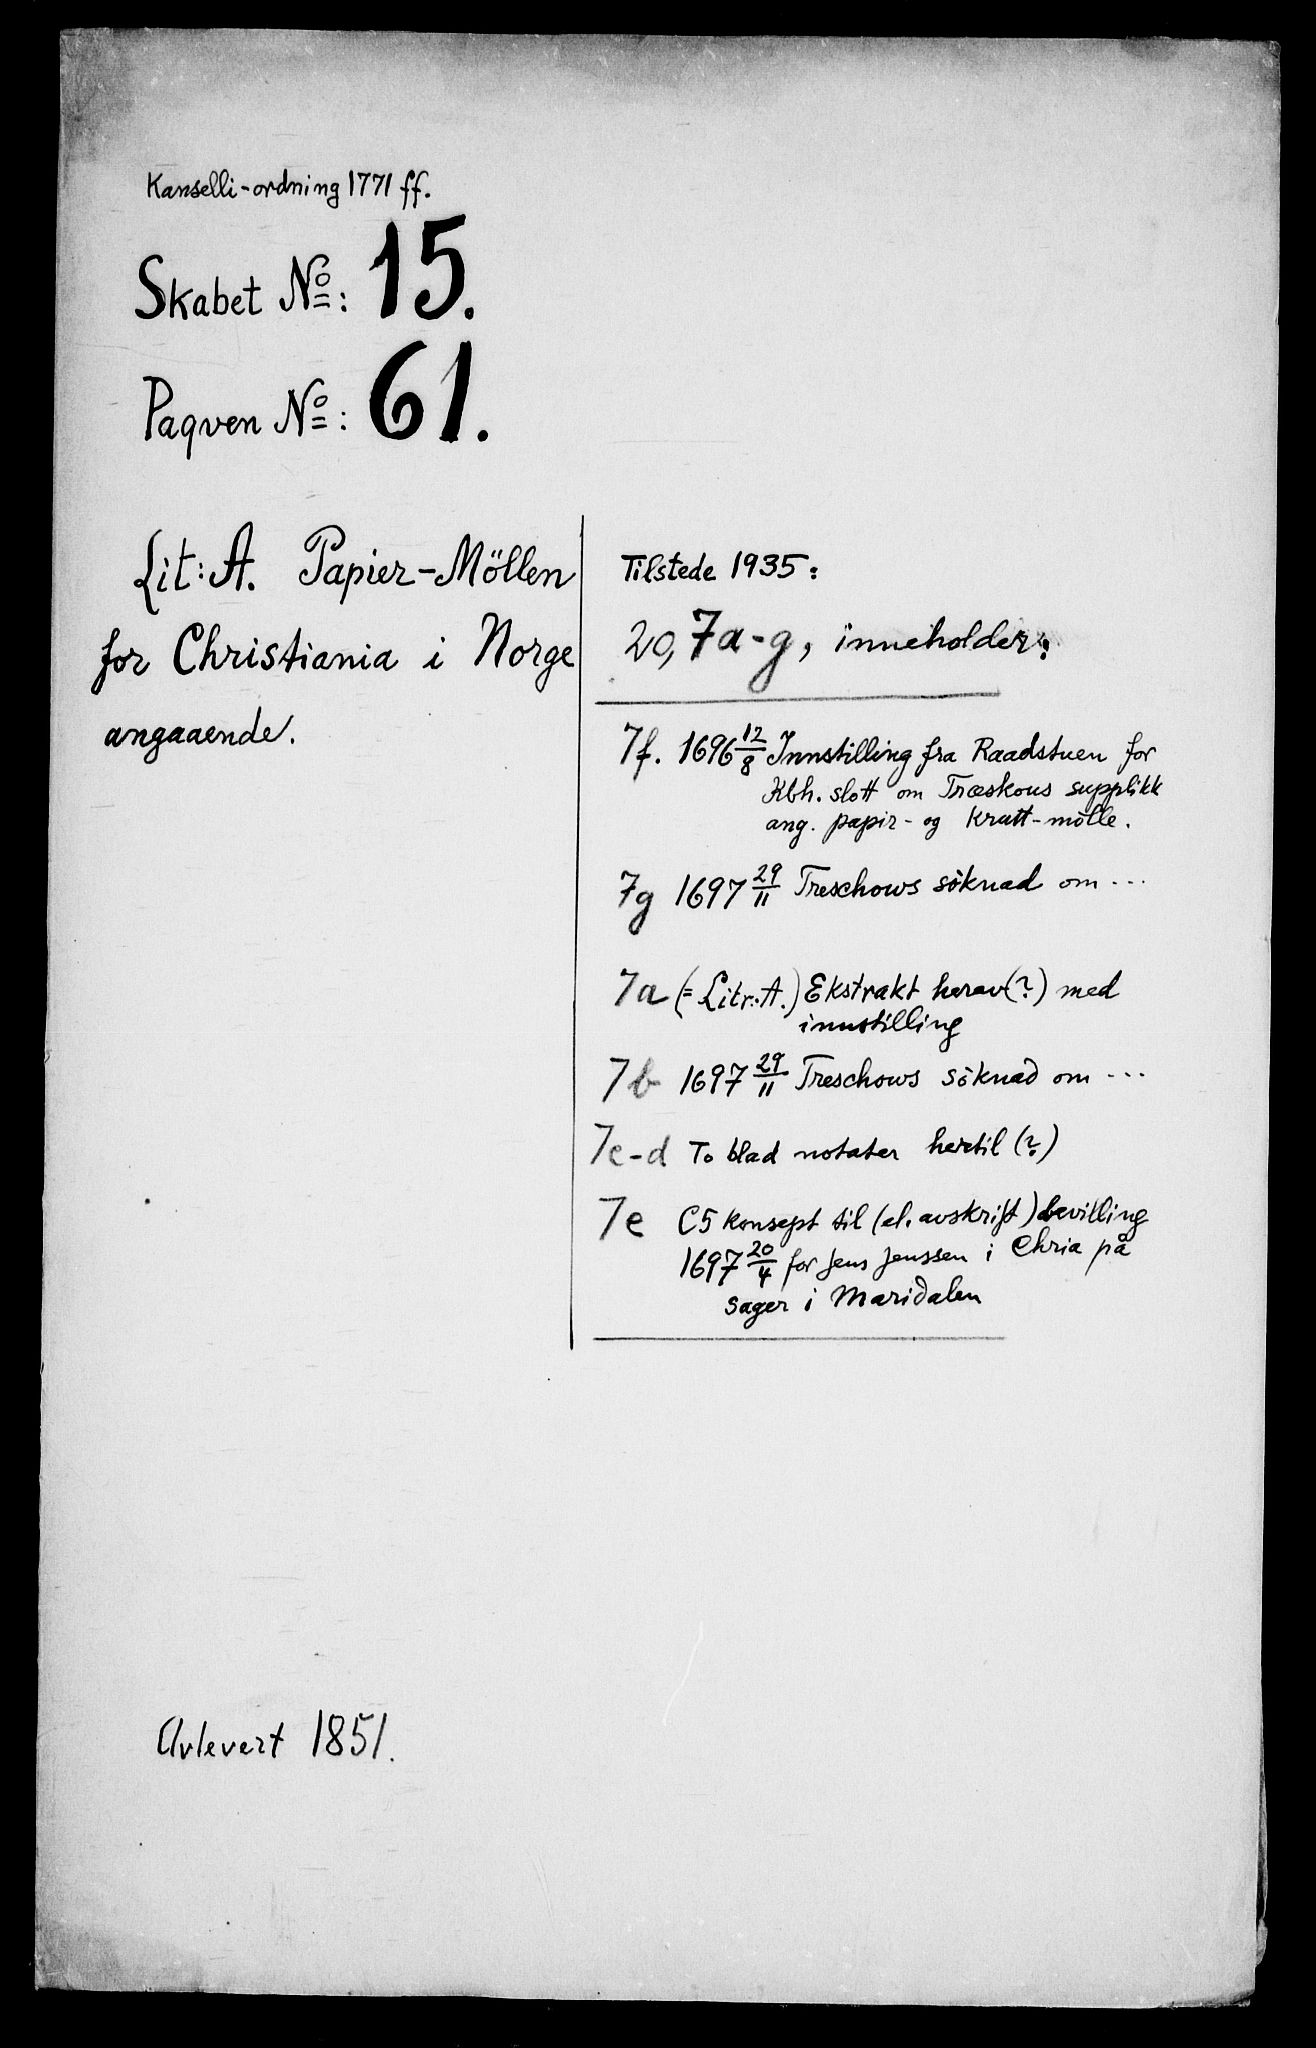 Kanselli-ordning 1771 ff.
Skabet No: 15.
Paqven No: 61.
Lit: A. Papier-Möllen
for Christiania i Norge
angaaende.
Tilstede 1935:
20, 7a-g, inneholder:
7f. 1696 12/8 Innstilling fra Raadstuen for
Kbh. slott om Træskous supplikk
ang. papir- og krutt-mölle.
7g 1697 29/11 Treschows söknad om ...
7a (= Litr: A.) Ekstrakt herav(?) med
innstilling
7b 1697 29/11 Treschows söknad om ...
7c-d To blad notater hertil (?)
7e C5 konsept til (el. avskrift) bevilling
1697 20/4 for Jens Jenssen i Chria på
sager i Maridalen
Avlevert 1851.